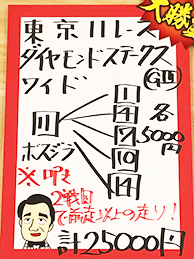 大勝
東京11レース
ダイヤモンドステークス
GⅢ
ワイド
11
ホスジラ
1
4
7
10
14
各
5000円
※叩き
2戦目
で前走以上の走り!
計25000円